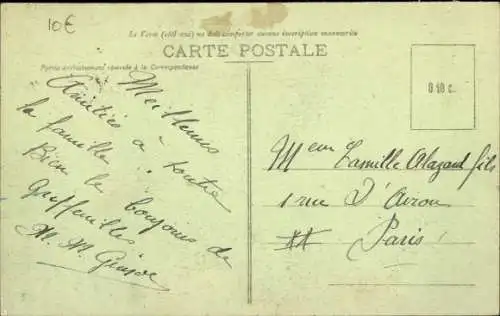 10€
Le Verso (côté vue) ne doit comporter aucune inscription manuscrite
CARTE POSTALE
Partie exclusivement réservée à la Correspondance
Meilleures
Amitiés à toute
la famille.
Bien le bonjour de
M. M.
0.10 c.
Famille Alazard fils
1 rue D'Avron
XX
Paris